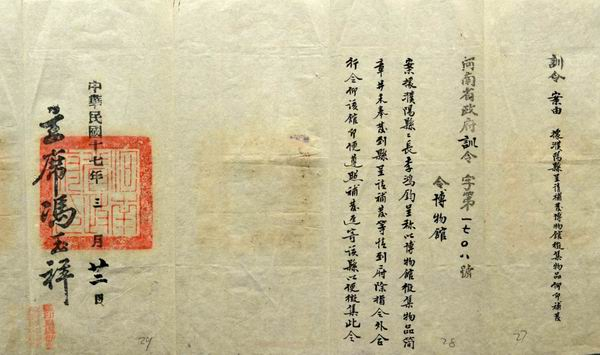 訓令 案由 據濮陽縣呈請補蓋博物館徵集物品仰即補蓋
河南省政府訓令 字第一七〇八號
令博物館
案據濮陽縣縣長李鴻鈞呈稱以博物館徵集物品簡
章并未奉蓋到縣呈請補蓋等情到府除指令外合
行令仰該館即便遵照補蓋逕寄該縣以便徵集此令
中華民國十七年三月廿二日
主席馮玉祥
27
28
29